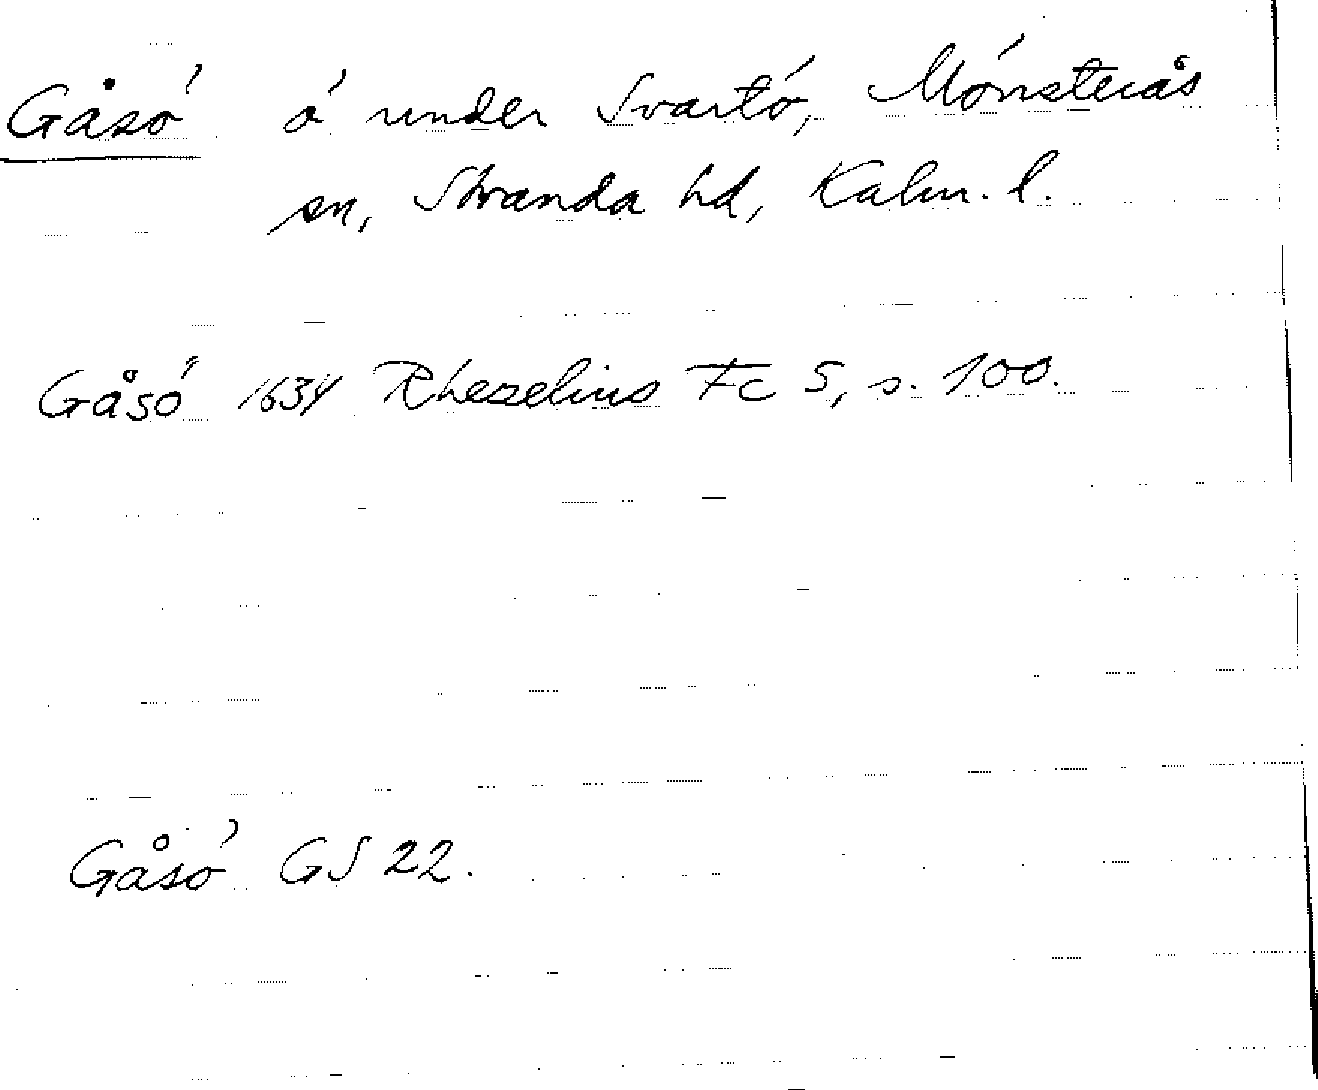 Gåsö ö under Svartö, Mönsterås
sn, Stranda hd, Kalm. l.
Gåsö 1634 Rhezelius Fc 5, s. 100.
Gåsö GS 22.